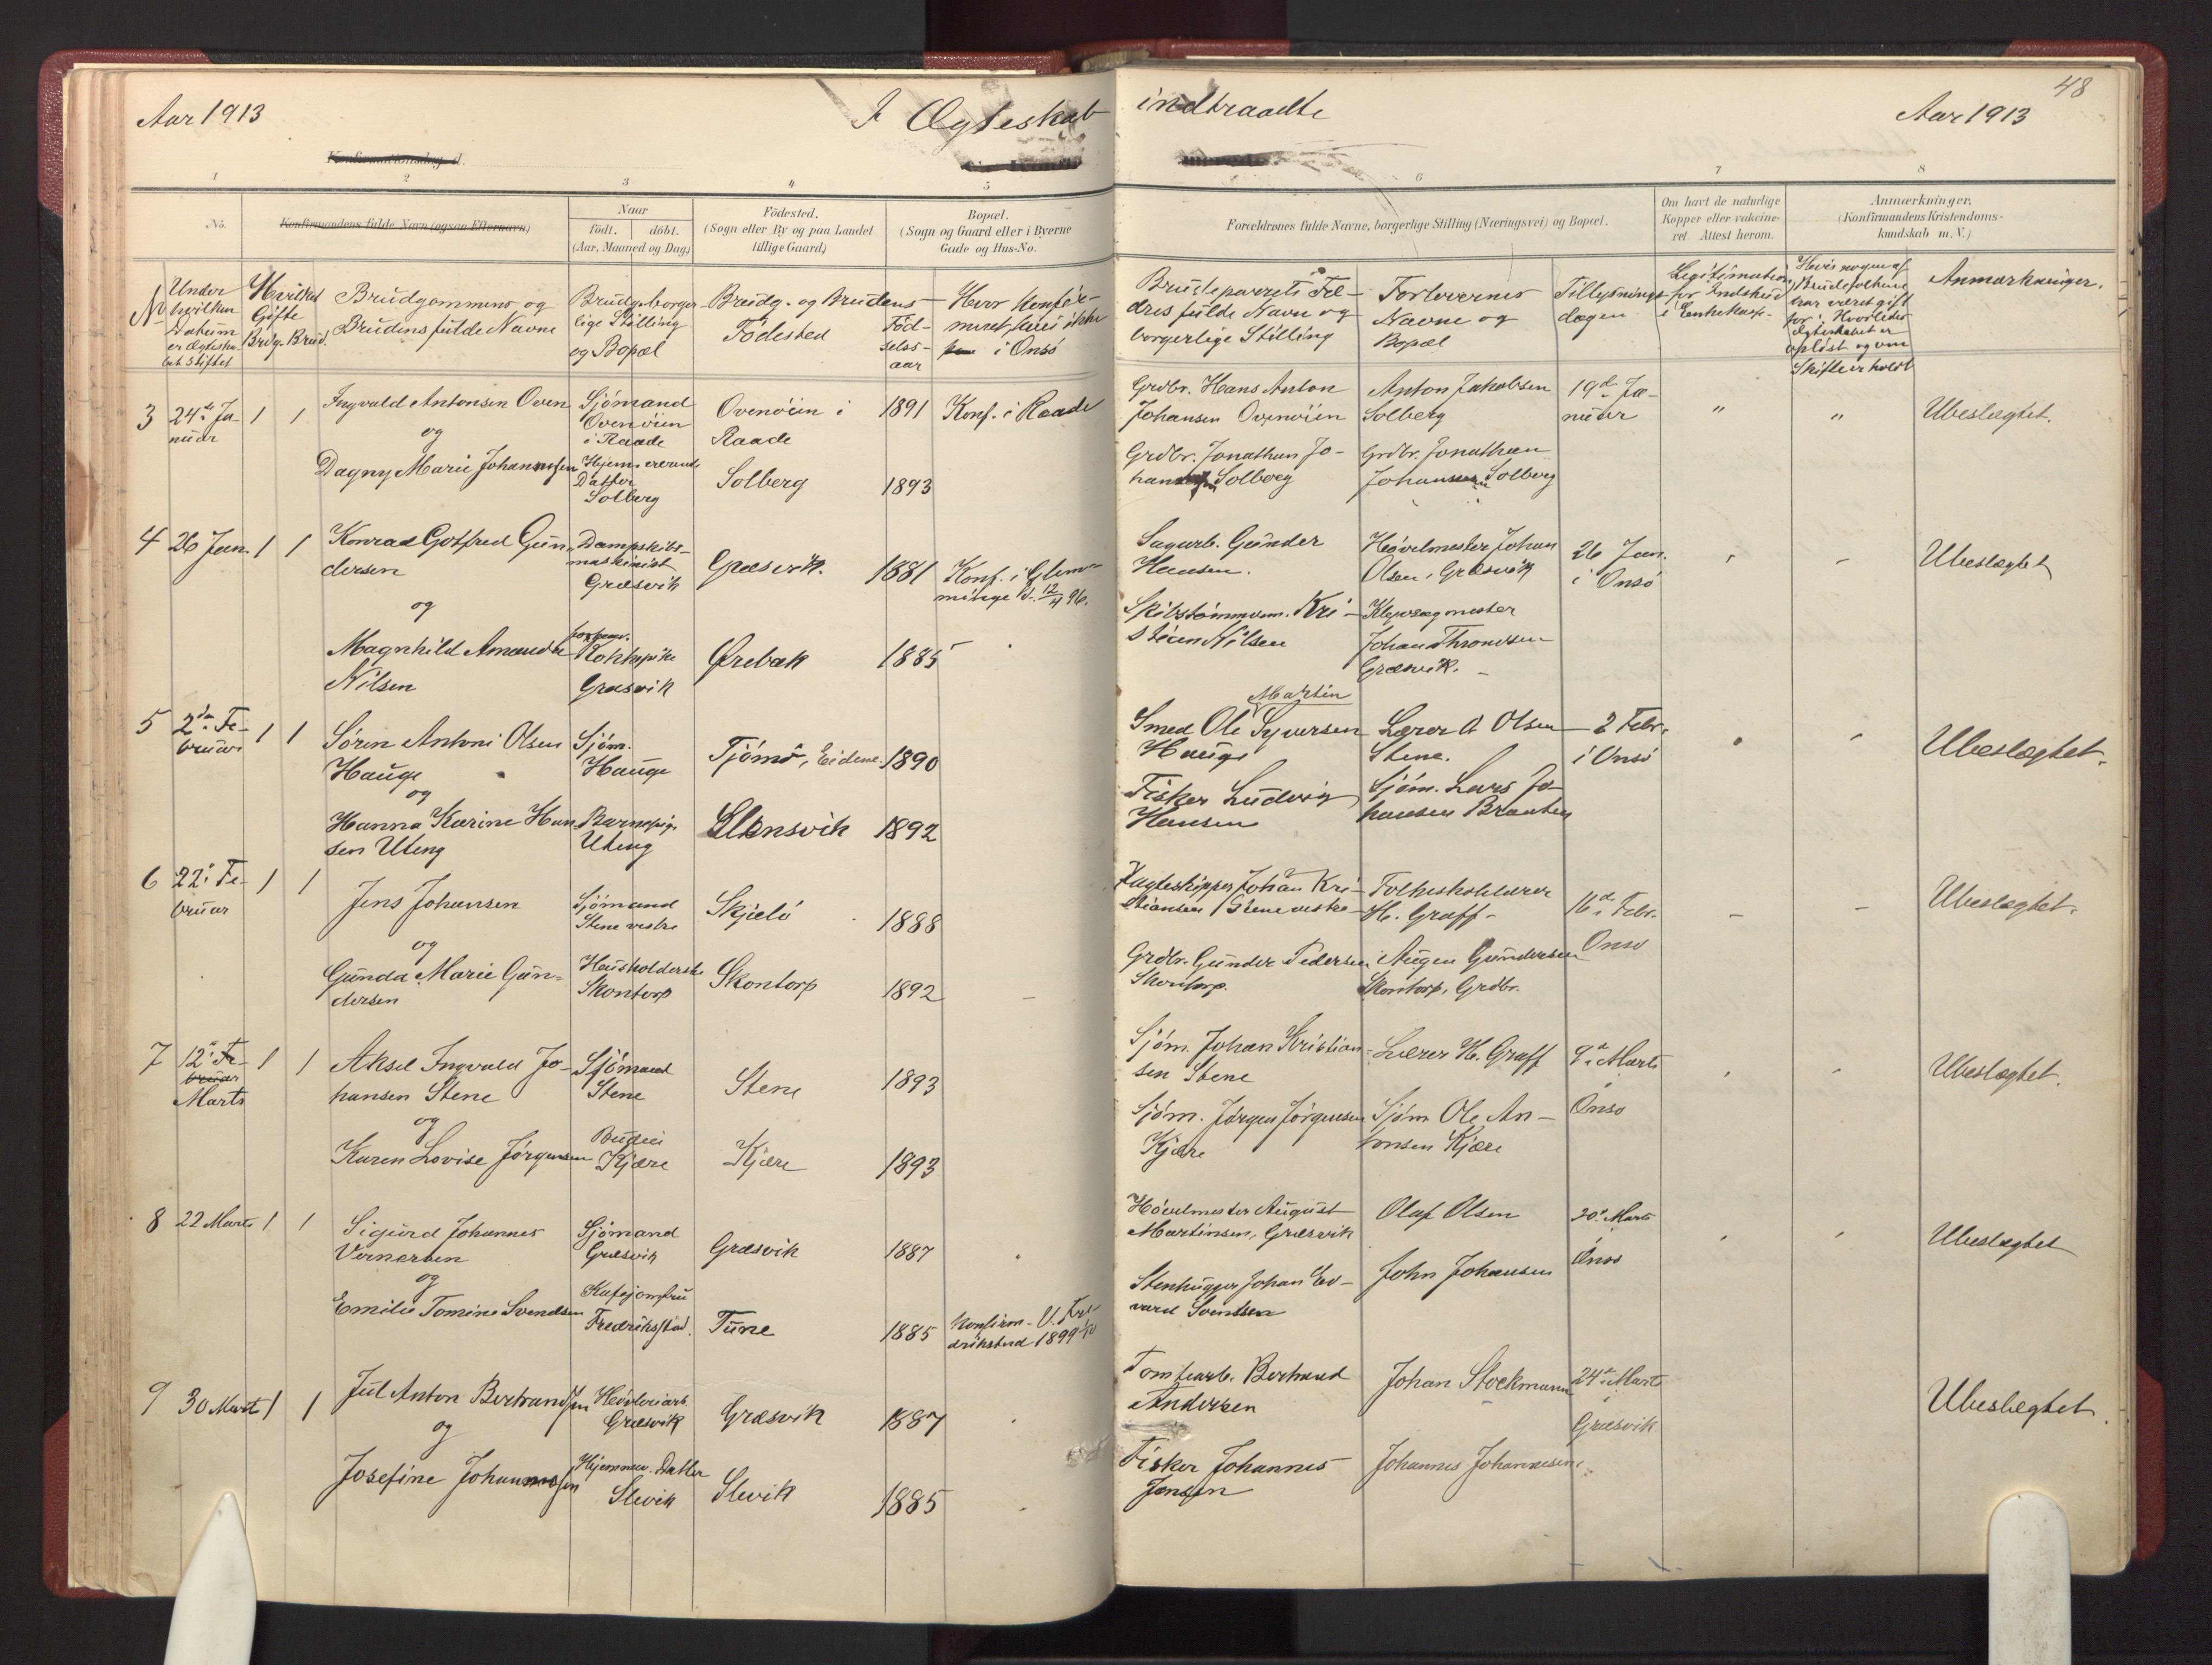 48
Aar 1913
I Ægteskab indtraadte
Aar 1913
1 2 3 4 5 6 7 8
No.
Konfirmandens fulde Navn (ogsaa Efternavn)
Naar
født. døbt.
(Aar, Maaned og Dag)
Fødested.
(Sogn eller By og paa Landet
tillige Gaard)
Bopæl.
(Sogn og Gaard eller i Byerne
Gade og Hus-No.
Forældrenes fulde Navne, borgerlige Stilling (Næringsvei) og Bopæl.
Om havt de naturlige
Kopper eller vaksine-
ret. Attest herom.
Anmærkninger.
(Konfirmandens Kristendoms-
kundskab m. V.)
No
Under
hvilken
Datum
er Ægteska-
bet stiftet
Hvilket
Gifte
Brdg. Brud.
Brudgommens og
Brudens fulde Navne
Brudg. borger-
lige Stilling
og Bopæl
Brudg.- og Brudens
Fødested
Fød-
sels-
aar
Hvor konfir-
meret hvis ikke
i Onsø
Brudeparrets Fæ-
dres fulde Navn og
borgerlige Stilling
Forlovernes
Navne og
Bopæl
Tillysnings-
dagen
Legitimation
for Indskud
i Enkekasse
Hvis nogen af
Brudefolkene
har været gift
før: Hvorledes
Ægteskabet er
opløst og om
Skifte er holdt
Anmærkninger.
3 24de Ja-
nuar
1 1
Ingvald Antonsen Oven
og
Dagny Marie Johannesen
Sjømand
Ovenøien
i Raade
Hjemmeværende
Datter
Solberg
Ovenøien i
Raade
Solberg
1891
1893
Konf. i Raade
Grdbr. Hans Anton
Johansen Ovenøien
Grdbr. Jonathan Jo-
hansen Solberg
Anton Jakobsen
Solberg
Grdbr. Jonathan
Johansen Solberg
19de Ja-
nuar
" "
Ubeslægtet.
4 26 Jan. 1 1
Konrad Gotfred Gun-
dersen
og
Magnhild Amanda
Nilsen
Dampskibs-
maskinist
Græsvik
Kokkepike
Græsvik
Græsvik.
Ørebak
1881
1885
Konf. i Glem-
minge d. 12/4 96.
Sagarb. Gunder
Hansen.
Skibstømmerm. Kri-
stian Nilsen
Høvelmester Johan
Olsen, Græsvik
Klypsagmester
Johan Throndsen
Græsvik.
26 Jan.
i Onsø
Ubeslægtet
5 2den Fe-
bruar
1 1
Søren Antoni Olsen
Hauge
og
Hanna Karine Han-
sen Uteng
Sjøm.
Hauge
Barnepige
Uteng
Tjømø, Eidene.
Elensvik
1890
1892
Martin
Smed Ole Syversen
Hauge
Fisker Ludvig
Hansen
Lærer A Olsen
Stene.
Sjøm. Lars Jo-
hansen Braaten
2 Febr.
i Onsø
Ubeslægtet.
6 22de Fe-
bruar
1 1
Jens Johansen
og
Gunda Marie Gun-
dersen
Sjømand
Stene vestre
Husholderske
Skontorp
Skjelø
Skontorp
1888
1892
Jagteskipper Johan Kri-
stiansen Stene vestre
Grdbr. Gunder Pedersen
Skontorp.
Folkeskolelærer
H. Graff
Augen Gundersen
Skontorp, Grdbr.
16de Febr.
i Onsø
Ubeslægtet.
7 12te Fe-
bruar
Marts
1 1
Aksel Ingvald Jo-
hansen Stene
og
Karen Lovise Jørgensen
Sjømand
Stene
Budeie
Kjære
Stene
Kjære
1893
1893
Sjøm. Johan Kristian-
sen Stene
Sjøm. Jørgen Jørgensen
Kjære
Lærer H. Graff
Sjøm. Ole An-
tonsen Kjære
9de Marts
i
Onsø
Ubeslægtet.
8 22 Marts 1 1
Sigurd Johannes
Vernersen
og
Emilie Tomine Svendsen
Sjømand
Græsvik
Kafejomfru
Fredriksstad.
Græsvik
Tune
1887
1885
Konfirm. V. Fre-
drikstad 1899
Høvelmester August
Martinsen, Græsvik
Stenhugger Johan Ed-
vard Svendsen
Olaf Olsen
John Johansen
20de Marts
i
Onsø
Ubeslægtet
9 30 Marts 1 1
Jul Anton Bertrandsen
og
Josefine Johannessen
Høvleriarb.
Græsvik
Hjemmev. Datter
Slevik
Græsvik
Slevik
1887
1885
Tomtearb. Bertrand
Andersen
Fisker Johannes
Jensen
Johan Stockmann
Johannes Johannesen
24de Marts
i
Græsvik
Ubeslægtet.